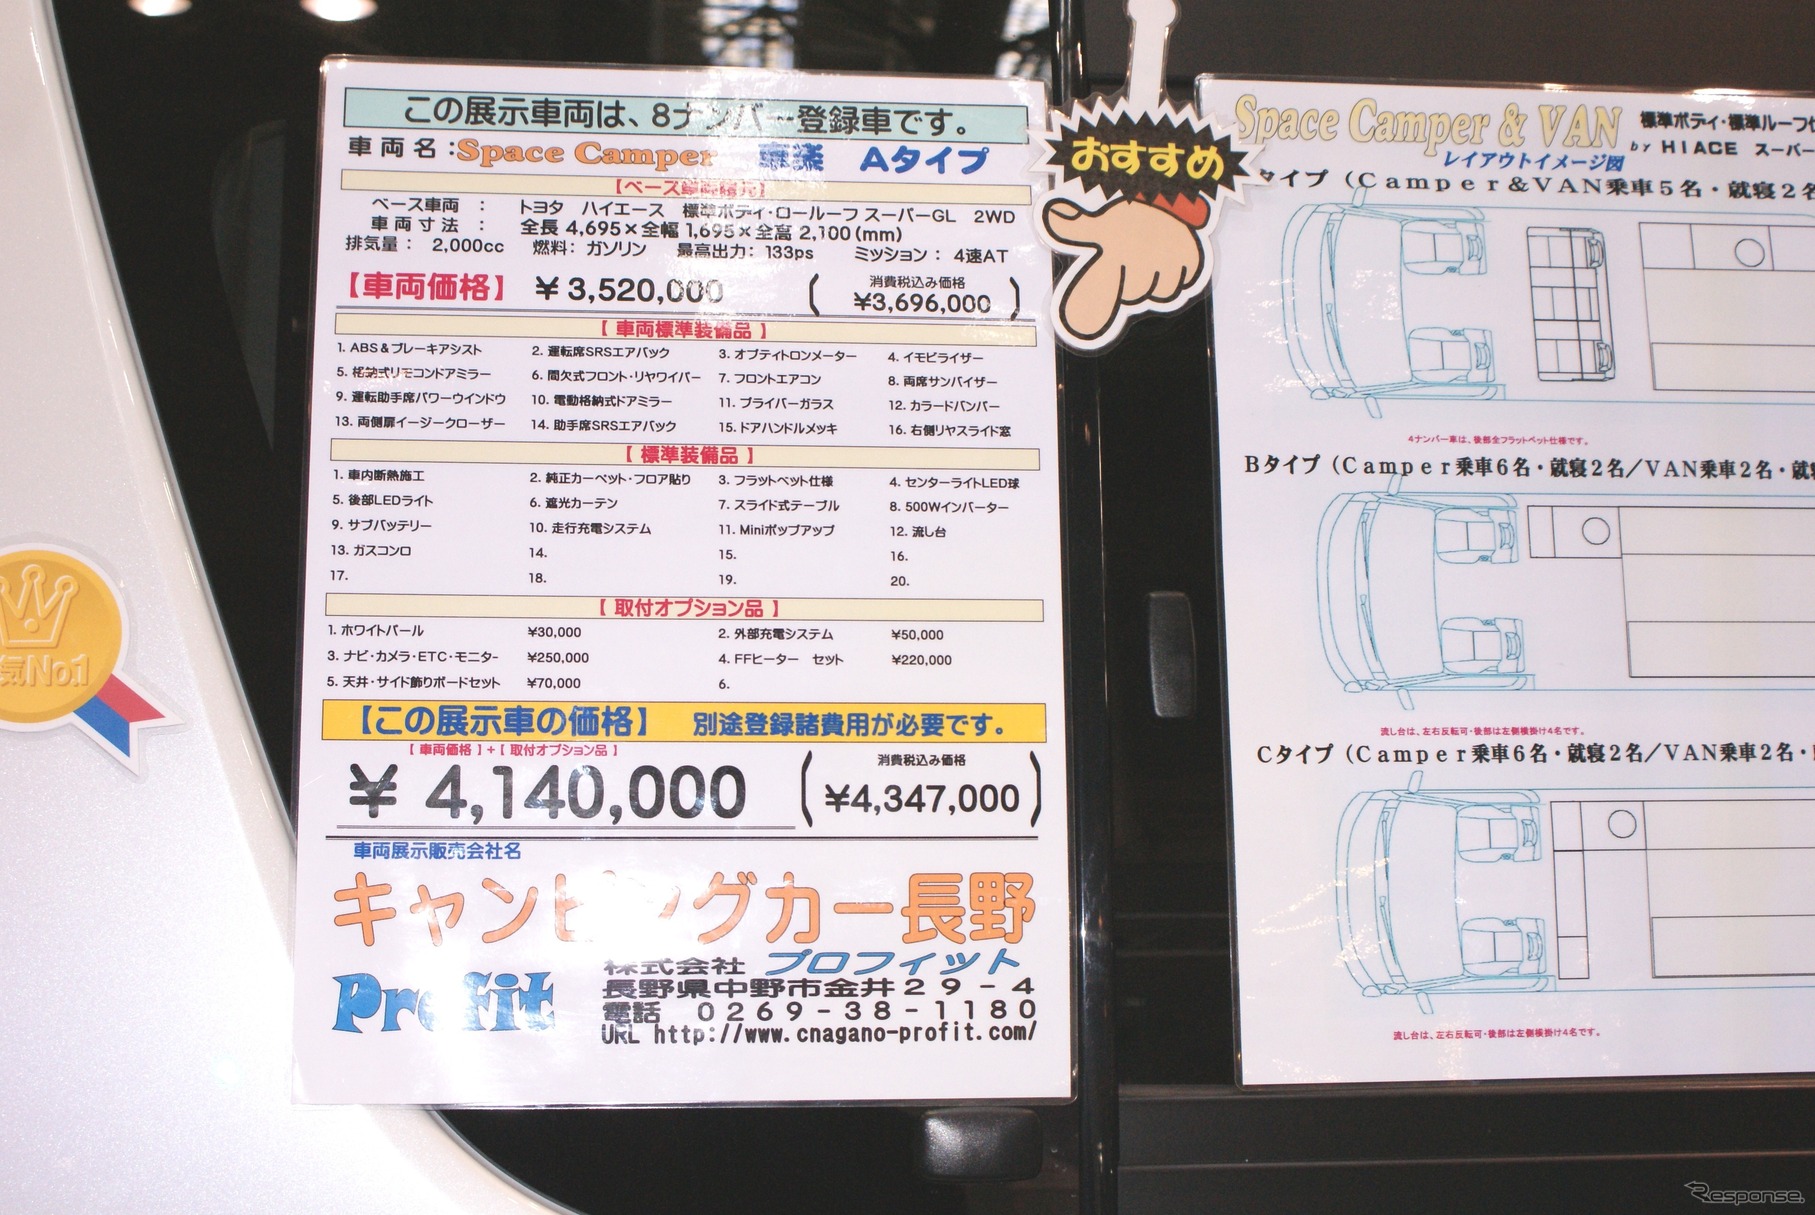 この展示車両は、8ナンバー登録車です。
車両名：Space Camper Aタイプ
【ベース車両諸元】
ベース車両 ： トヨタ ハイエース 標準ボディ・ロールーフ スーパーGL 2WD
車両寸法 ： 全長 4,695×全幅 1,695×全高 2,100(mm)
排気量： 2,000cc 燃料： ガソリン 最高出力： 133ps ミッション： 4速AT
【車両価格】 ￥3,520,000 （ 消費税込み価格 ￥3,696,000 ）
【 車両標準装備品 】
1. ABS＆ブレーキアシスト 2. 運転席SRSエアバック 3. オプティトロンメーター 4. イモビライザー
5. 格納式リモコンドアミラー 6. 間欠式フロント・リヤワイパー 7. フロントエアコン 8. 両席サンバイザー
9. 運転助手席パワーウインドウ 10. 電動格納式ドアミラー 11. プライバーガラス 12. カラードバンパー
13. 両側扉イージークローザー 14. 助手席SRSエアバック 15. ドアハンドルメッキ 16. 右側リヤスライド窓
【 標準装備品 】
1. 車内断熱施工 2. 純正カーペット・フロア貼り 3. フラットベット仕様 4. センターライトLED球
5. 後部LEDライト 6. 遮光カーテン 7. スライド式テーブル 8. 500Wインバーター
9. サブバッテリー 10. 走行充電システム 11. Miniポップアップ 12. 流し台
13. ガスコンロ 14. 15. 16.
17. 18. 19. 20.
【 取付オプション品 】
1. ホワイトパール ¥30,000 2. 外部充電システム ¥50,000
3. ナビ・カメラ・ETC・モニター ¥250,000 4. FFヒーター セット ¥220,000
5. 天井・サイド飾りボードセット ¥70,000 6.
【この展示車の価格】 別途登録諸費用が必要です。
【 車両価格 】＋【 取付オプション品 】
￥ 4,140,000 （ 消費税込み価格 ￥4,347,000 ）
車両展示販売会社名
キャンピングカー長野
Profit 株式会社 プロフィット
長野県中野市金井２９－４
電話 ０２６９－３８－１１８０
URL http://www.cnagano-profit.com/
おすすめ
Space Camper & VAN 標準ボディ・標準ルーフ
レイアウトイメージ図 by HIACE スーパー
タイプ（Camper&VAN乗車５名・就寝２名
4ナンバー車は、後部全フラットベット仕様です。
Bタイプ（Camper乗車６名・就寝２名／VAN乗車２名・就寝
流し台は、左右反転可・後部は左側横掛け4名です。
Cタイプ（Camper乗車６名・就寝２名／VAN乗車２名・
流し台は、左右反転可・後部は左側横掛け4名です。
気No.1
Response.